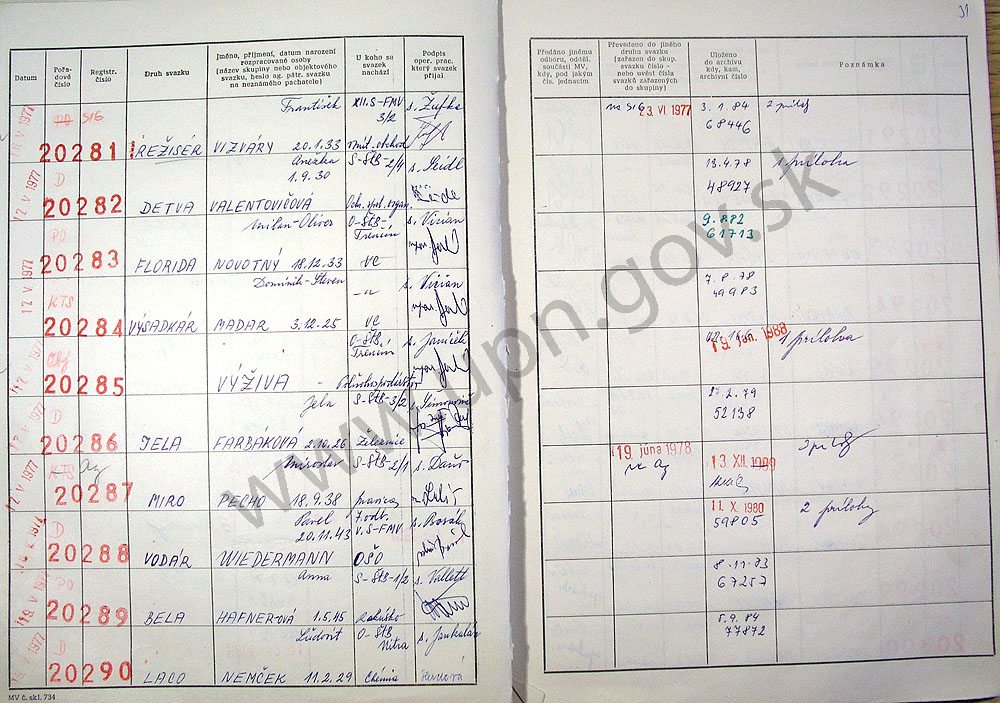 31
Datum
Pořadové číslo
Registr. číslo
Druh svazku
Jméno, příjmení, datum narození rozpracované osoby (název skupiny nebo objektového svazku, heslo ag. pátr. svazku na neznámého pachatele)
U koho se svazek nachází
Podpis oper. prac. který svazek přijal
Předáno jinému odboru, odděl. součásti MV, kdy, pod jakým čís. jednacím
Převedeno do jiného druhu svazku (zařazen do skup. svazku číslo - nebo uvést čísla svazků zařazených do skupiny)
Uloženo do archivu kdy, kam, archivní číslo
Poznámka
František XII.S-FMV s. Žufka
PO SIG 3/2
20281 REŽISÉR VIZVÁRY 20.1.33
na SIG 23. VI. 1977 3. 1. 84
68446
12 V 1977 D Anežka S-ŠtB-2/4 s. Seidl
1.9.30
20282 DETVA VALENTOVIČOVÁ
13.4.78 1 príloha
48927
12 V 1977 PO Milan-Oliver O-ŠtB- s. Vician
Trenčín
20283 FLORIDA NOVOTNÝ 18.12.33 VC
9. 8.82
61713
12 V 1977 KTS Dominik-Steven s. Vician
20284 VÝSADKÁR MADAR 3.12.25 VC
7. 8. 78
49983
Obj O-ŠtB s. Janíček
Trenčín
20285 VÝŽIVA - Poľnohospodárstvo
19. jan. 1988 1 príloha
D Jela S-ŠtB-3/2
20286 JELA FARBÁKOVÁ 2.10.26 Železnice
27. 2. 79
52138
12 V 1977 KTS Ag Miroslav S-ŠtB-2/1 s. Daňo
20287 MIRO PECHO 18.9.38
19. júna 1978 13 XII. 1980
na Ag
D Pavel 7. odb. s. Bosák
20.11.43 V. S-FMV
20288 VODÁR WIEDERMANN OŠO
11. X. 1980 2 prílohy
59805
PO Anna S-ŠtB-1/2 s. Vallett
20289 BELA HAFNEROVÁ 1.5.45 Rakúsko
8. 11. 83
67257
D Ľudovít O-ŠtB s. Jankulár
Nitra
20290 LACO NEMČEK 11.2.29 Chémia
5. 9. 84
77872
MV č. skl. 734
www.upn.gov.sk